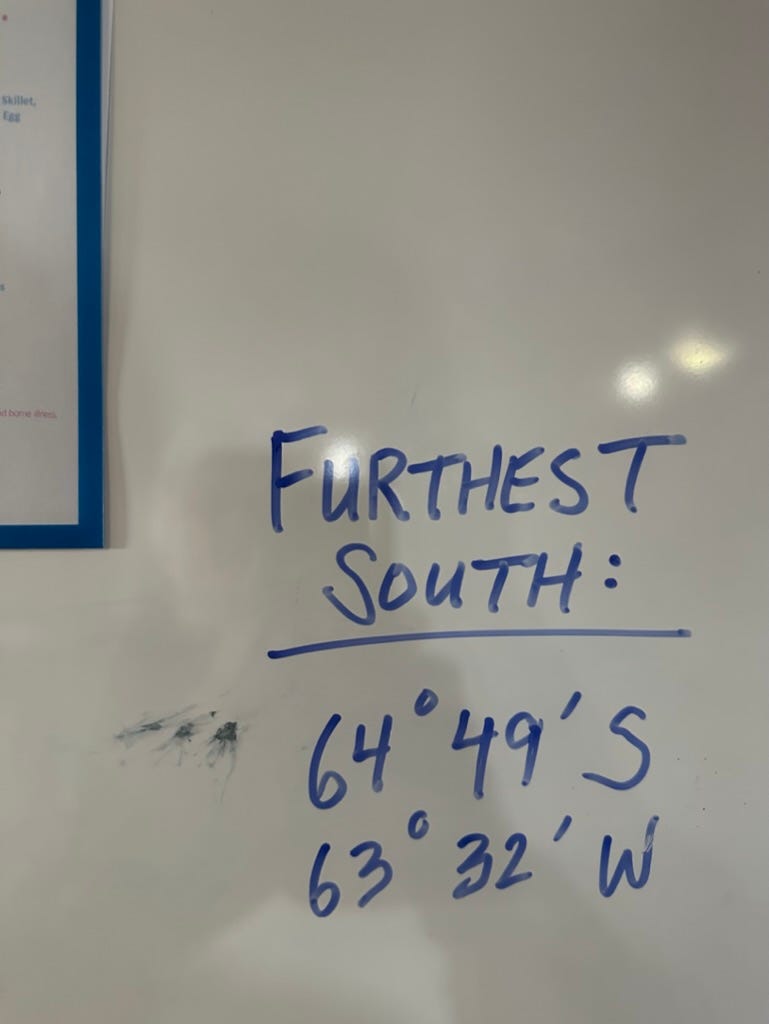 Skillet,
Egg
borne illness.
FURTHEST
SOUTH:
64° 49' S
63° 32' W